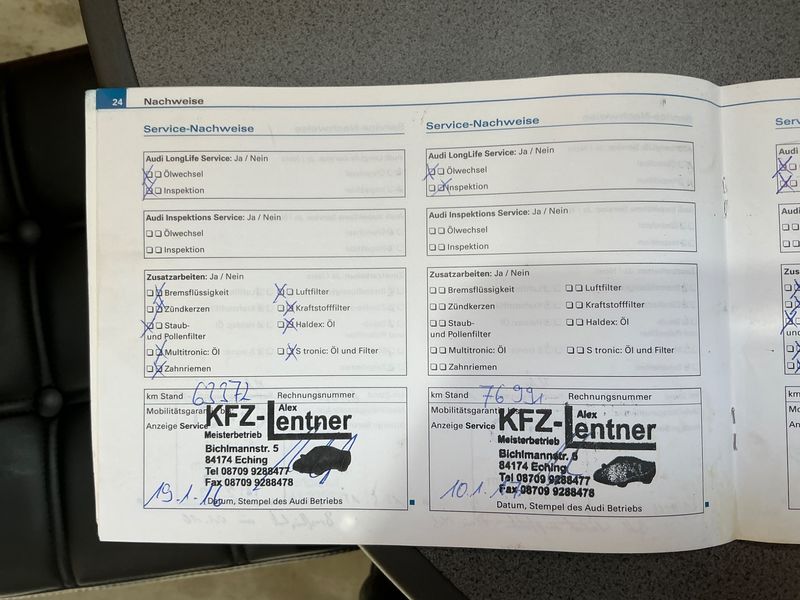 24 Nachweise
Service-Nachweise
Audi LongLife Service: Ja / Nein
Ölwechsel
Inspektion
Audi Inspektions Service: Ja / Nein
Ölwechsel
Inspektion
Zusatzarbeiten: Ja / Nein
Bremsflüssigkeit Luftfilter
Zündkerzen Kraftstofffilter
Staub- Haldex: Öl
und Pollenfilter
Multitronic: Öl S tronic: Öl und Filter
Zahnriemen
km Stand 63372 Rechnungsnummer
Mobilitätsgarant
Anzeige Service
KFZ-Lentner
Alex
Meisterbetrieb
Bichlmannstr. 5
84174 Eching
Tel 08709 9288477
Fax 08709 9288478
19.1.16
Datum, Stempel des Audi Betriebs
Service-Nachweise
Audi LongLife Service: Ja / Nein
Ölwechsel
Inspektion
Audi Inspektions Service: Ja / Nein
Ölwechsel
Inspektion
Zusatzarbeiten: Ja / Nein
Bremsflüssigkeit Luftfilter
Zündkerzen Kraftstofffilter
Staub- Haldex: Öl
und Pollenfilter
Multitronic: Öl S tronic: Öl und Filter
Zahnriemen
km Stand 76991 Rechnungsnummer
Mobilitätsgarant
Anzeige Service
KFZ-Lentner
Alex
Meisterbetrieb
Bichlmannstr. 5
84174 Eching
Tel 08709 9288477
Fax 08709 9288478
10.1.17
Datum, Stempel des Audi Betriebs